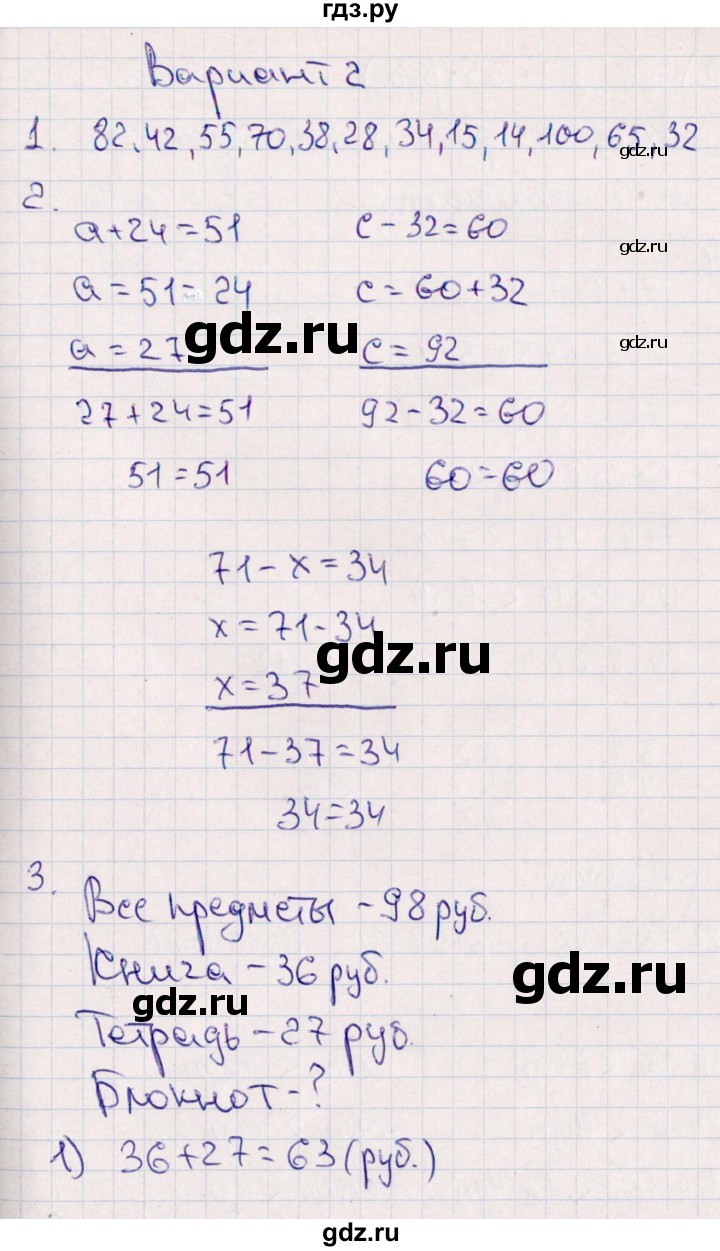 гдз.ру
Вариант 2
1. 82, 42, 55, 70, 38, 28, 34, 15, 14, 100, 65, 32
gdz.ru
2.
a + 24 = 51 c - 32 = 60
gdz.ru
a = 51 - 24 c = 60 + 32
gdz.ru
a = 27 c = 92
gdz.ru
27 + 24 = 51 92 - 32 = 60
51 = 51 60 = 60
71 - x = 34
x = 71 - 34
gdz.ru
x = 37
71 - 37 = 34
34 = 34
3.
Все предметы - 98 руб.
Книга - 36 руб.
gdz.ru
gdz.ru
Тетрадь - 27 руб.
Блокнот - ?
1) 36 + 27 = 63 (руб.)
gdz.ru